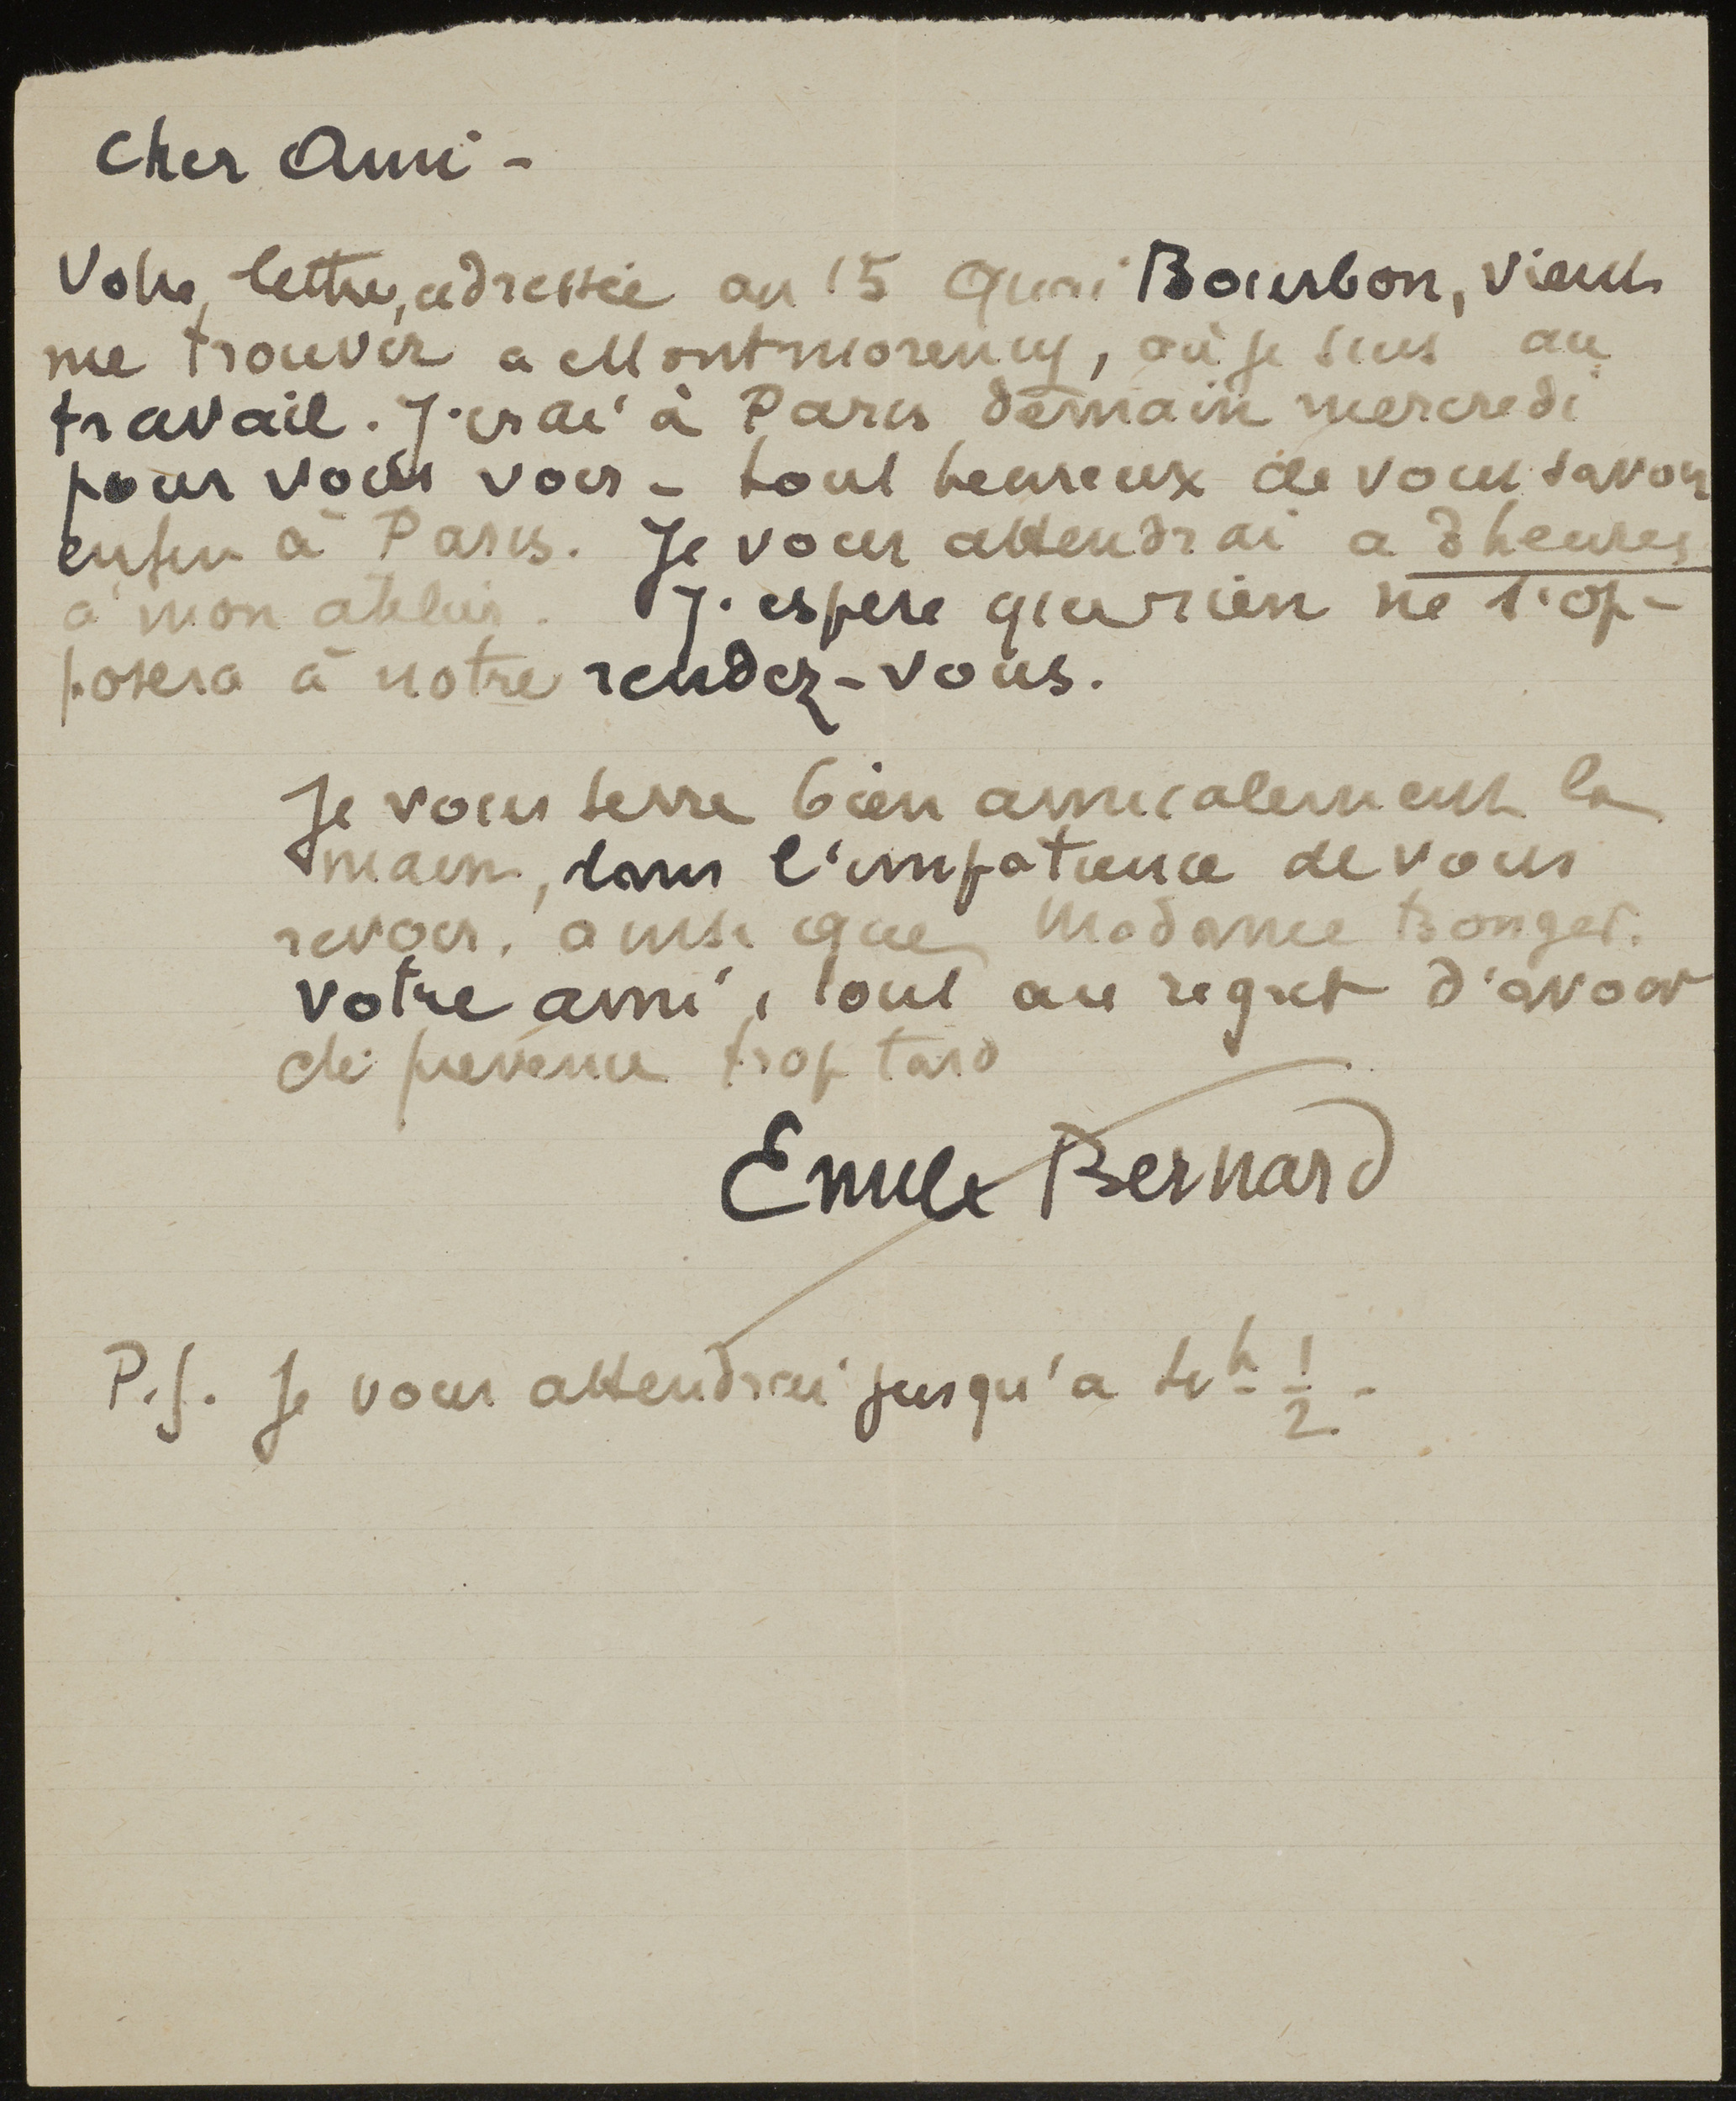 Cher Ami -
Votre lettre, adressée au 15 Quai Bourbon, vient
me trouver a Montmorency, où je suis au
travail. J'irai à Paris demain mercredi
pour vous voir - tout heureux de vous savoir
enfin à Paris. Je vous attendrai a heures
a mon atelier. J'espere que rien ne s'op-
posera à notre rendez-vous.
Je vous serre bien amicalement la
main, dans l'impatience de vous
revoir, ainsi que Madame Bonger.
Votre ami, tout au regret d'avoir
été prévenu trop tard
Emile Bernard
P.S. Je vous attendrai jusqu'a h 1/2 -